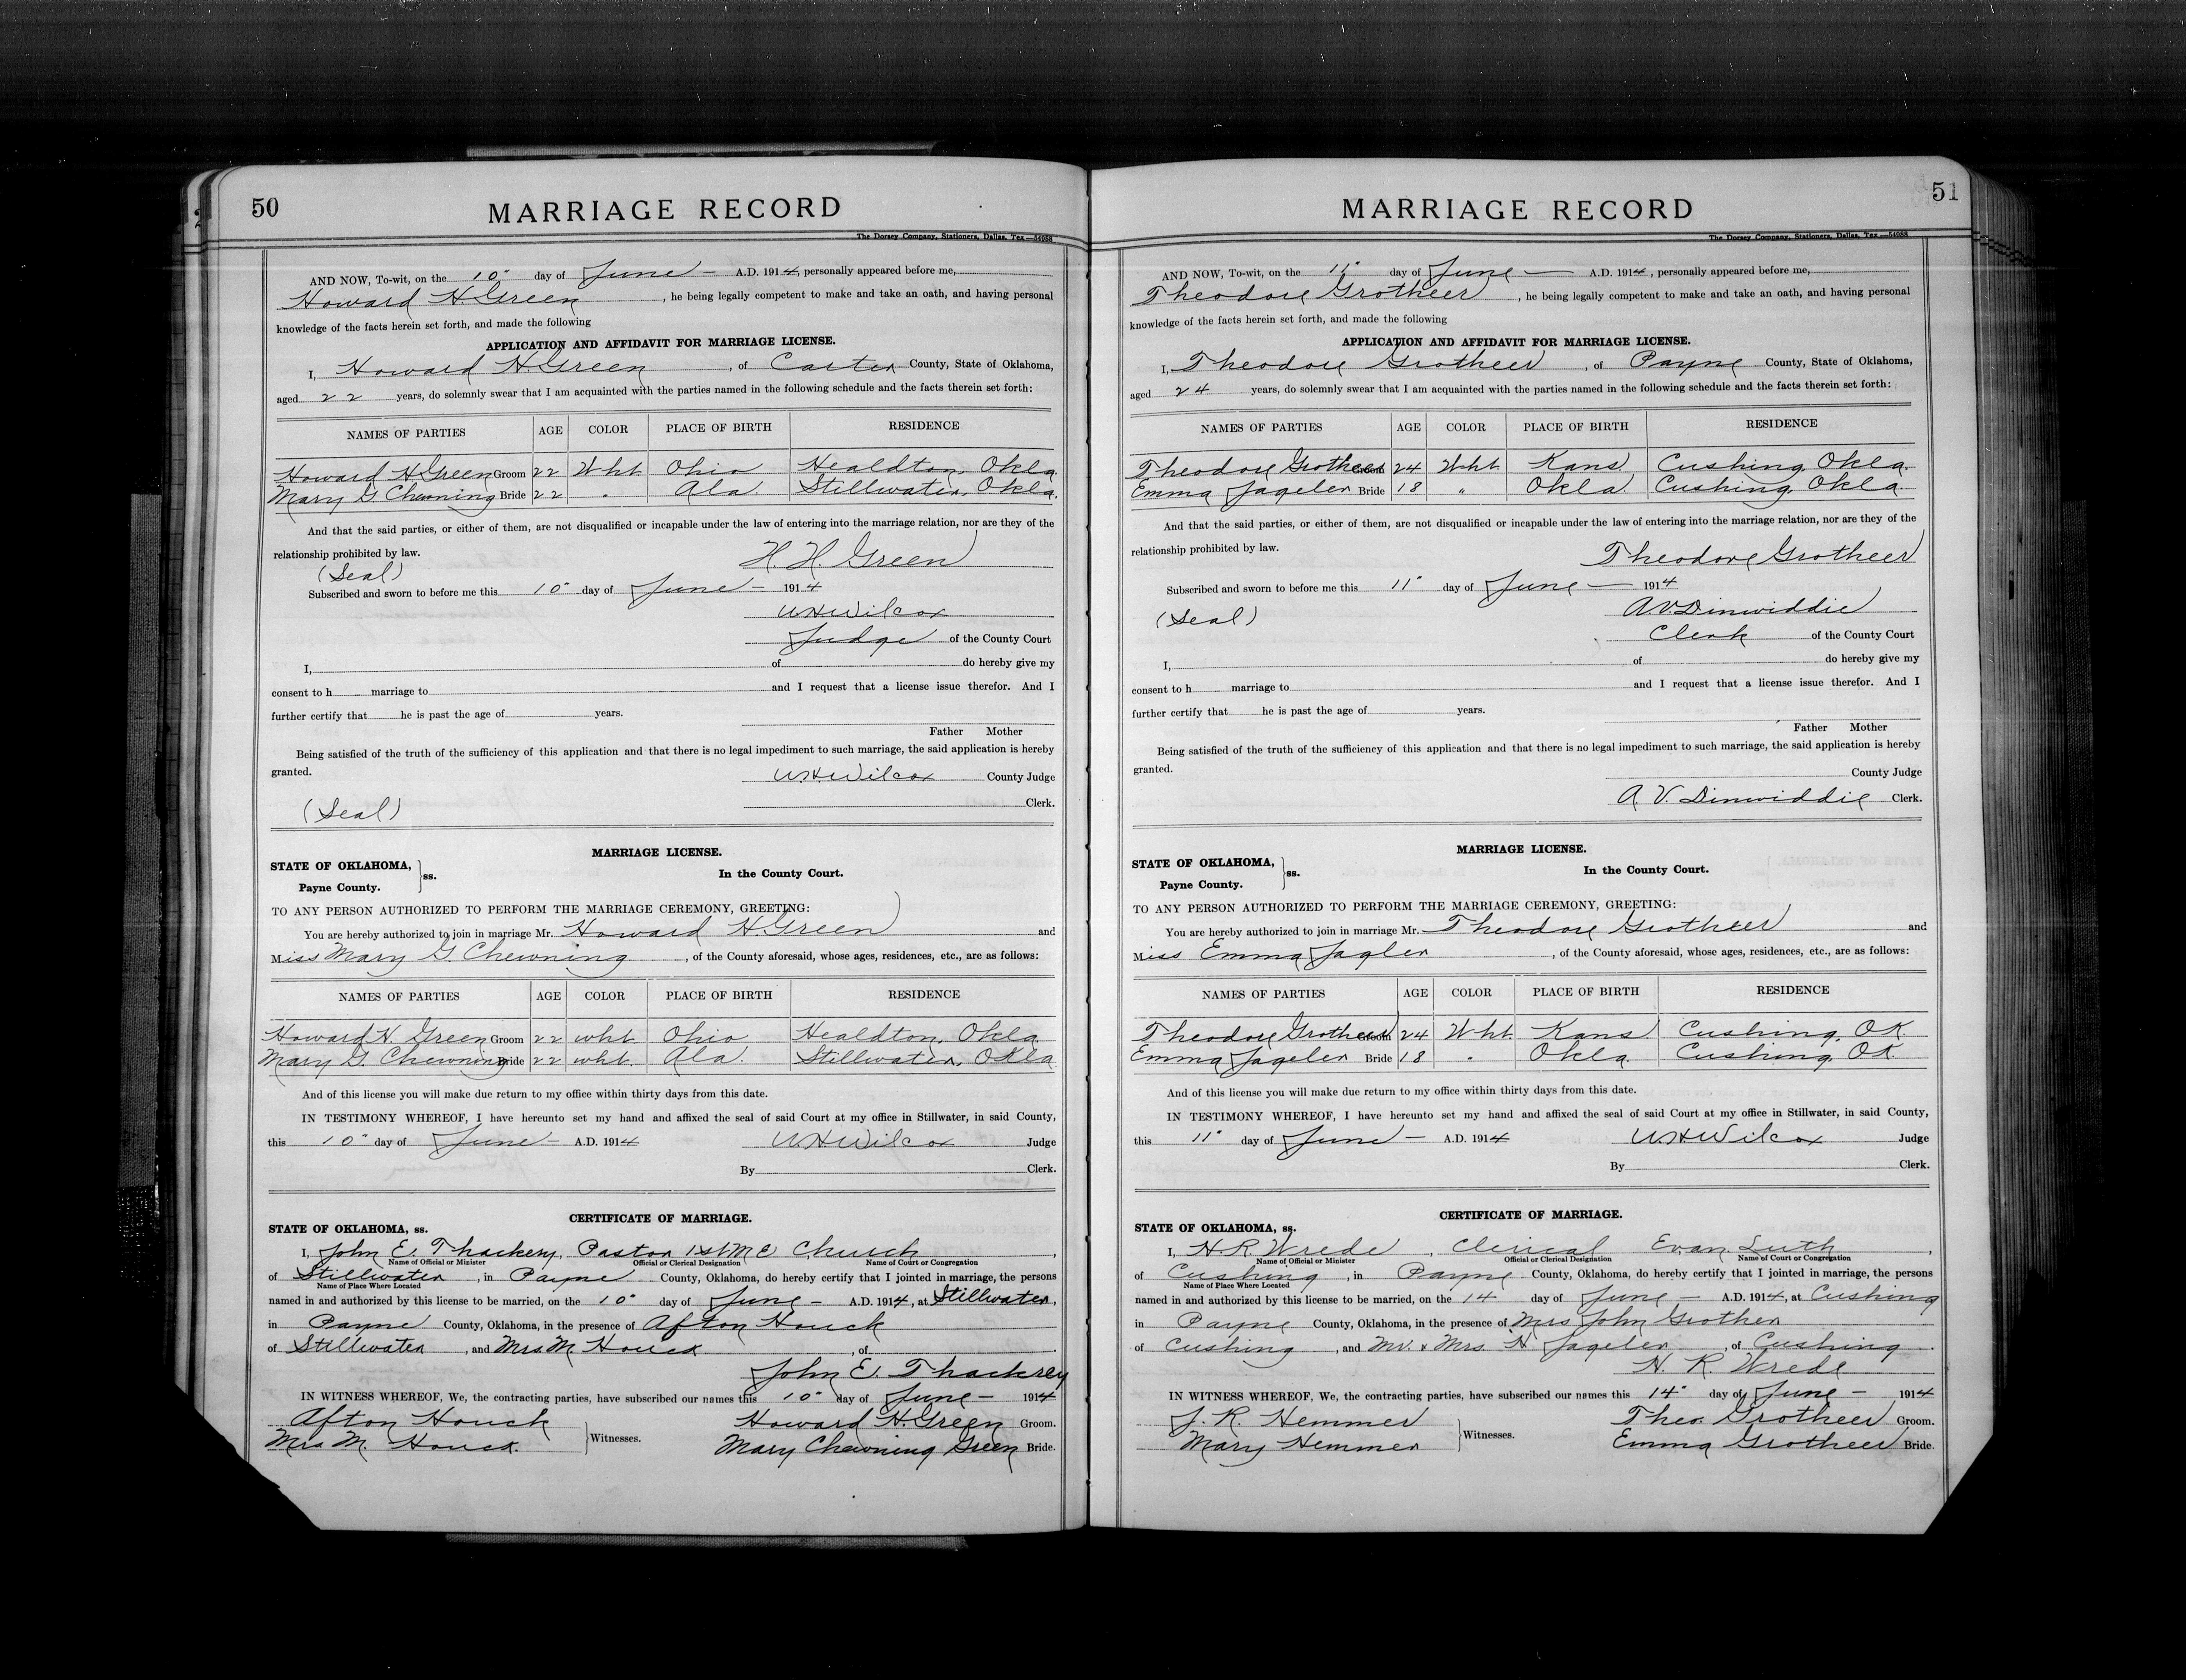 50
MARRIAGE RECORD
The Dorsey Company, Stationers, Dallas, Tex.—54988
AND NOW, To-wit, on the 10" day of June — A.D. 1914, personally appeared before me,
Howard H. Green, he being legally competent to make and take an oath, and having personal
knowledge of the facts herein set forth, and made the following
APPLICATION AND AFFIDAVIT FOR MARRIAGE LICENSE.
I, Howard H. Green, of Carter County, State of Oklahoma,
aged 22 years, do solemnly swear that I am acquainted with the parties named in the following schedule and the facts therein set forth:
NAMES OF PARTIES AGE COLOR PLACE OF BIRTH RESIDENCE
Howard H Green Groom 22 Wht. Ohio Healdton, Okla.
Mary G. Chewning Bride 22 " Ala. Stillwater, Okla.
And that the said parties, or either of them, are not disqualified or incapable under the law of entering into the marriage relation, nor are they of the
relationship prohibited by law. H. H. Green
(Seal)
Subscribed and sworn to before me this 10" day of June — 1914
W.H. Wilcox
Judge of the County Court
I, of do hereby give my
consent to h marriage to and I request that a license issue therefor. And I
further certify that he is past the age of years.
Father Mother
Being satisfied of the truth of the sufficiency of this application and that there is no legal impediment to such marriage, the said application is hereby
granted. W.H. Wilcox County Judge
(Seal) Clerk.
MARRIAGE LICENSE.
STATE OF OKLAHOMA, } ss.
In the County Court.
Payne County.
TO ANY PERSON AUTHORIZED TO PERFORM THE MARRIAGE CEREMONY, GREETING:
You are hereby authorized to join in marriage Mr. Howard H. Green and
Miss Mary G. Chewning, of the County aforesaid, whose ages, residences, etc., are as follows:
NAMES OF PARTIES AGE COLOR PLACE OF BIRTH RESIDENCE
Howard H. Green Groom 22 wht. Ohio Healdton, Okla.
Mary G. Chewning Bride 22 wht. Ala. Stillwater, Okla
And of this license you will make due return to my office within thirty days from this date.
IN TESTIMONY WHEREOF, I have hereunto set my hand and affixed the seal of said Court at my office in Stillwater, in said County,
this 10" day of June — A.D. 1914 W.H. Wilcox Judge
By Clerk.
CERTIFICATE OF MARRIAGE.
STATE OF OKLAHOMA, ss.
I, John E. Thackery, Pastor 1st M E Church,
Name of Official or Minister Official or Clerical Designation Name of Court or Congregation
of Stillwater, in Payne County, Oklahoma, do hereby certify that I jointed in marriage, the persons
Name of Place Where Located
named in and authorized by this license to be married, on the 10" day of June — A.D. 1914, at Stillwater,
in Payne County, Oklahoma, in the presence of Afton Houck
of Stillwater, and Mrs. M. Houck, of
John E. Thackrey
IN WITNESS WHEREOF, We, the contracting parties, have subscribed our names this 10" day of June — 1914
Afton Houck Howard H. Green Groom.
} Witnesses.
Mrs M. Houck. Mary Chewning Green Bride.
51
MARRIAGE RECORD
The Dorsey Company, Stationers, Dallas, Tex.—54988
AND NOW, To-wit, on the 11" day of June — A.D. 1914, personally appeared before me,
Theodore Grotheer, he being legally competent to make and take an oath, and having personal
knowledge of the facts herein set forth, and made the following
APPLICATION AND AFFIDAVIT FOR MARRIAGE LICENSE.
I, Theodore Grotheer, of Payne County, State of Oklahoma,
aged 24 years, do solemnly swear that I am acquainted with the parties named in the following schedule and the facts therein set forth:
NAMES OF PARTIES AGE COLOR PLACE OF BIRTH RESIDENCE
Theodore Grotheer Groom 24 Wht. Kans. Cushing, Okla.
Emma Jageler Bride 18 " Okla. Cushing, Okla.
And that the said parties, or either of them, are not disqualified or incapable under the law of entering into the marriage relation, nor are they of the
relationship prohibited by law. Theodore Grotheer
Subscribed and sworn to before me this 11" day of June — 1914
(Seal) A.V. Dinwiddie
Clerk of the County Court
I, of do hereby give my
consent to h marriage to and I request that a license issue therefor. And I
further certify that he is past the age of years.
Father Mother
Being satisfied of the truth of the sufficiency of this application and that there is no legal impediment to such marriage, the said application is hereby
granted. County Judge
A. V. Dinwiddie Clerk.
MARRIAGE LICENSE.
STATE OF OKLAHOMA, } ss.
In the County Court.
Payne County.
TO ANY PERSON AUTHORIZED TO PERFORM THE MARRIAGE CEREMONY, GREETING:
You are hereby authorized to join in marriage Mr. Theodore Grotheer and
Miss Emma Jagler, of the County aforesaid, whose ages, residences, etc., are as follows:
NAMES OF PARTIES AGE COLOR PLACE OF BIRTH RESIDENCE
Theodore Grotheer Groom 24 Wht. Kans. Cushing, OK.
Emma Jageler Bride 18 " Okla. Cushing, OK.
And of this license you will make due return to my office within thirty days from this date.
IN TESTIMONY WHEREOF, I have hereunto set my hand and affixed the seal of said Court at my office in Stillwater, in said County,
this 11" day of June — A.D. 1914 W.H. Wilcox Judge
By Clerk.
CERTIFICATE OF MARRIAGE.
STATE OF OKLAHOMA, ss.
I, H.R. Wrede, Clerical Evan. Luth,
Name of Official or Minister Official or Clerical Designation Name of Court or Congregation
of Cushing, in Payne County, Oklahoma, do hereby certify that I jointed in marriage, the persons
Name of Place Where Located
named in and authorized by this license to be married, on the 14 day of June — A.D. 1914, at Cushing
in Payne County, Oklahoma, in the presence of Mrs John Grother
of Cushing, and Mr. & Mrs. H Jageler, of Cushing.
H. R. Wrede
IN WITNESS WHEREOF, We, the contracting parties, have subscribed our names this 14" day of June — 1914
J. R. Hemmer Theo. Grotheer Groom.
} Witnesses.
Mary Hemmer Emma Grotheer Bride.